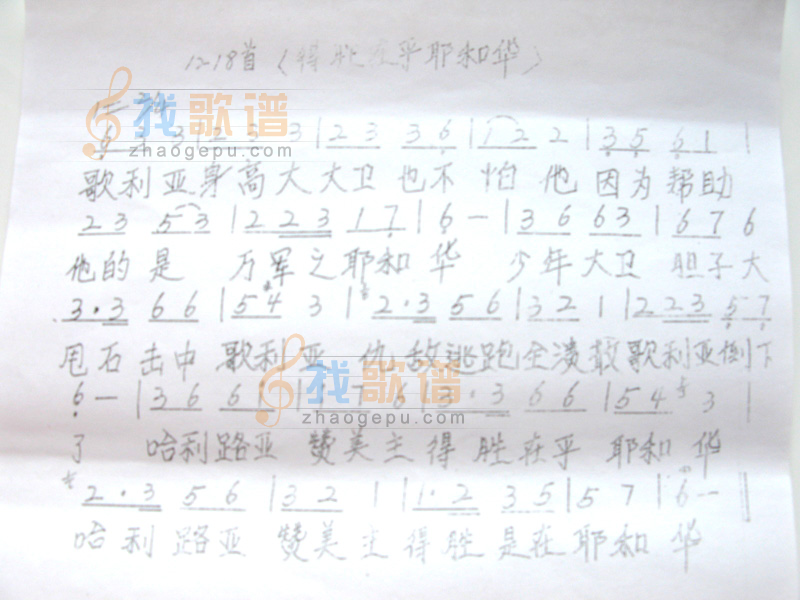 12-18首（得胜在乎耶和华）
1= 2/4
6 3|2 3 3|2 3 3 6|1 2 2|3 5 6 1|
歌利亚身高大大卫也不怕他因为帮助
2 3 5 3|2 2 3 1 7|6 -|3 6 6 3|6 7 6
他的是 万军之耶和华 少年大卫 胆子大
3·3 6 6|5 4 3|2·3 5 6|3 2 1|2 2 3 5 7
甩石击中歌利亚 仇敌逃跑全溃散歌利亚倒下
6 -|3 6 6 1|1 7 6|3·3 6 6|5 4 3|
了 哈利路亚 赞美主得胜在乎 耶和华
2·3 5 6|3 2 1|1·2 3 5|5 7|6 -‖
哈利路亚 赞美主得胜是在耶和华
找歌谱
zhaogepu.com
找歌谱
zhaogepu.com